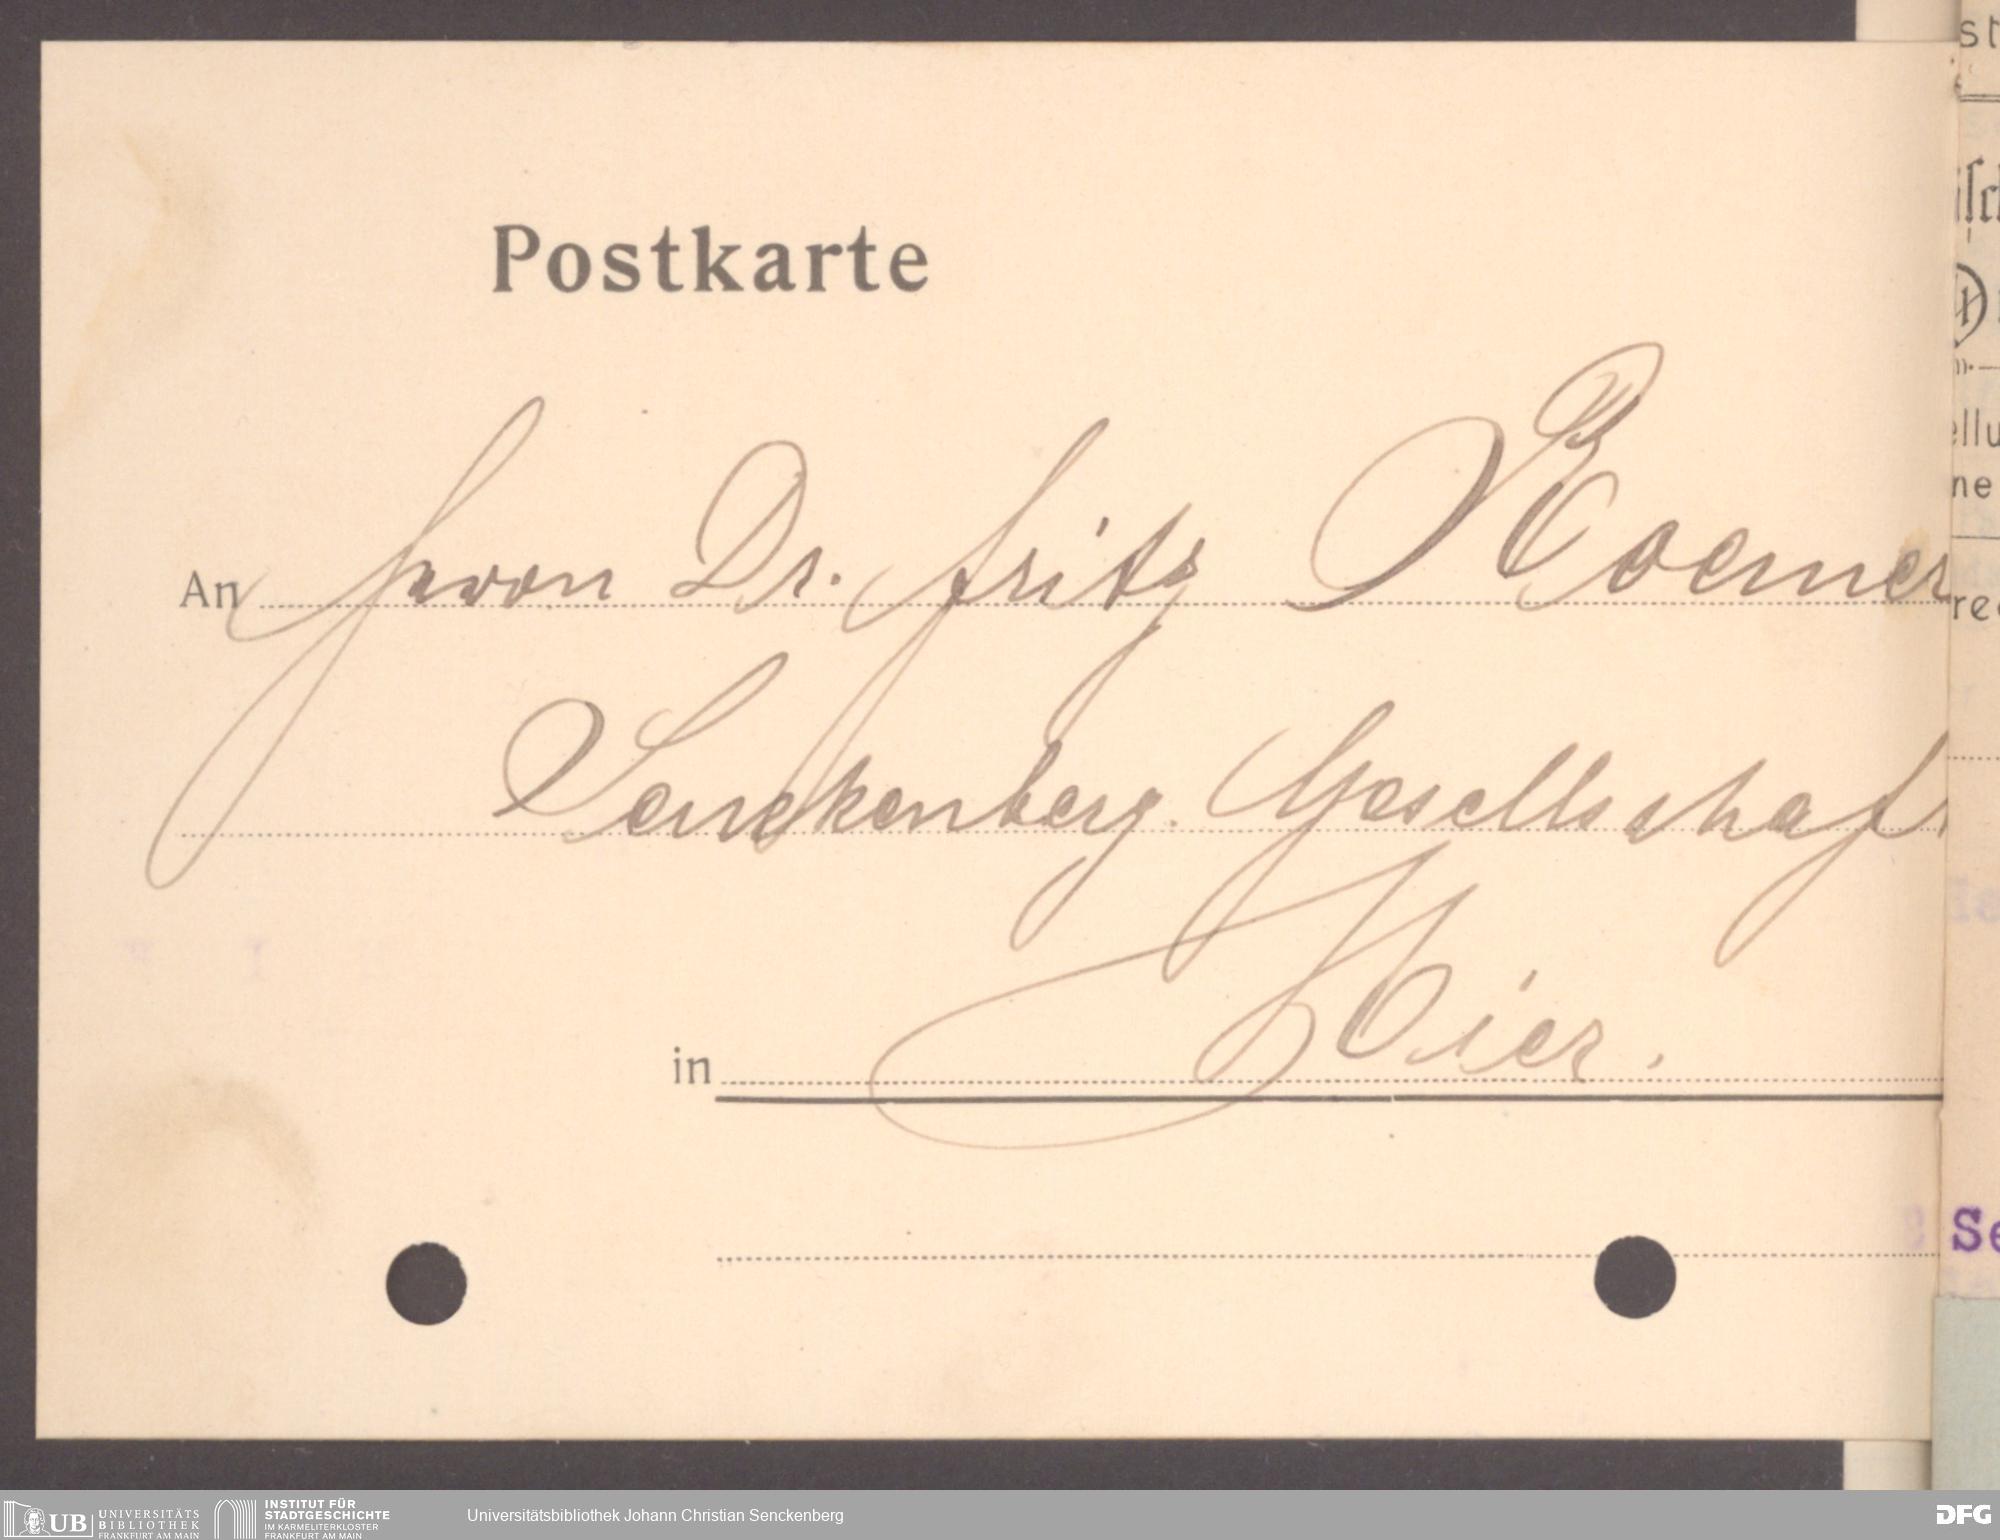 Postkarte
An Herrn Dr. Fritz Roemer
Senckenberg. Gesellschaft
in Hier.
Se
UB UNIVERSITÄTS
BIBLIOTHEK
FRANKFURT AM MAIN
INSTITUT FÜR
STADTGESCHICHTE
IM KARMELITERKLOSTER
FRANKFURT AM MAIN
Universitätsbibliothek Johann Christian Senckenberg
DFG